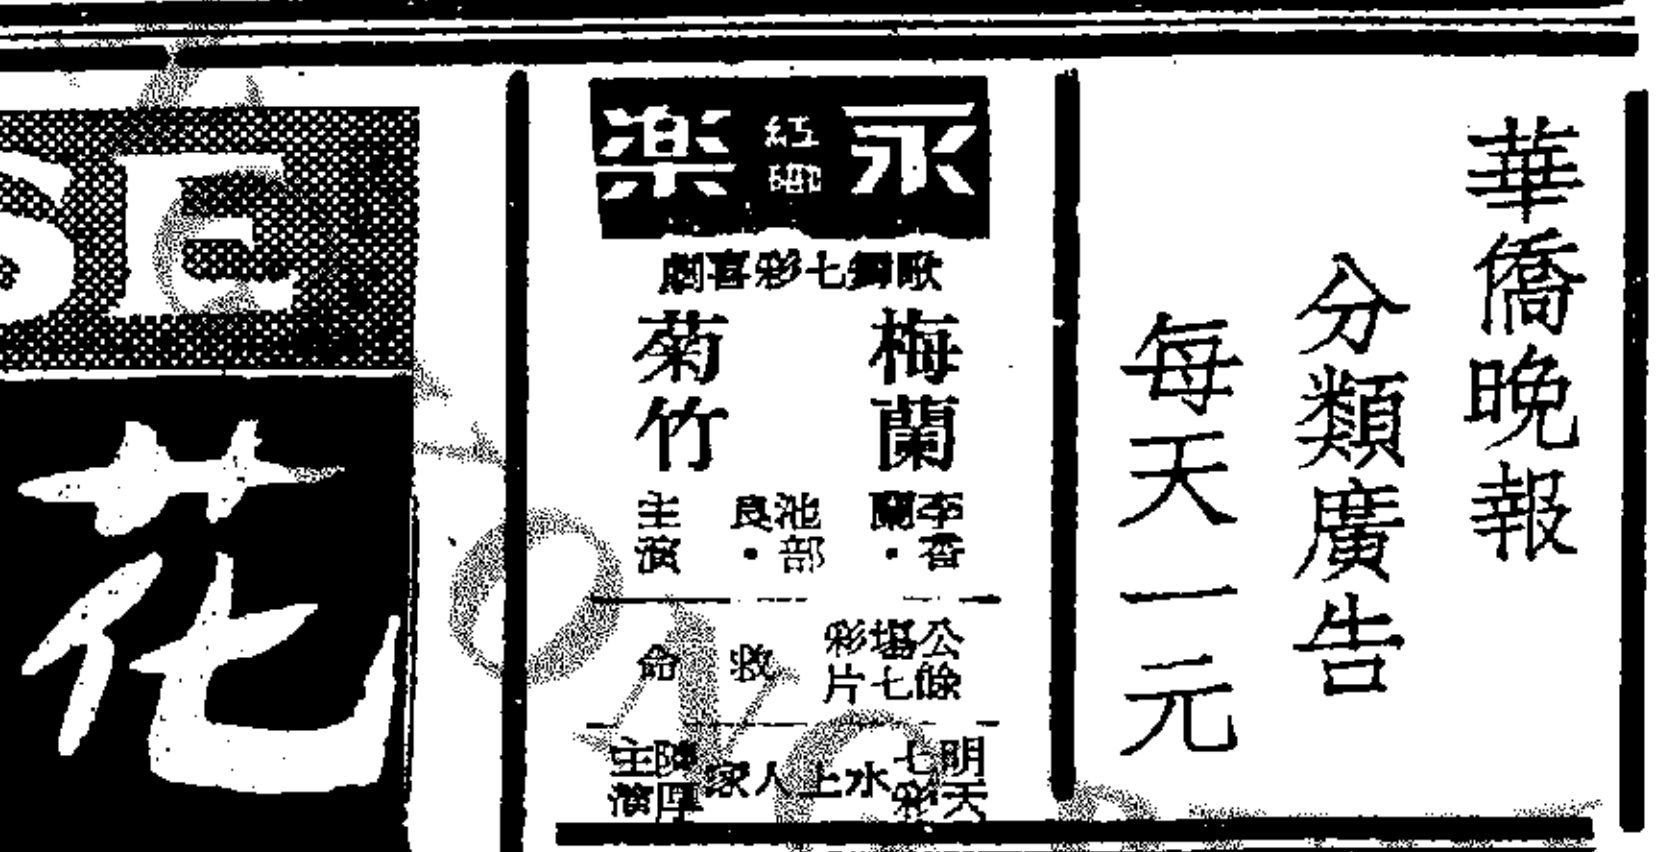 華僑晚報
分類廣告
每天一元
永樂
紅磡
歌舞七彩喜劇
梅蘭菊竹
李香蘭·池部良·主演
公餘場七彩片
救命
明天七彩
水上人家
主演
SE
花